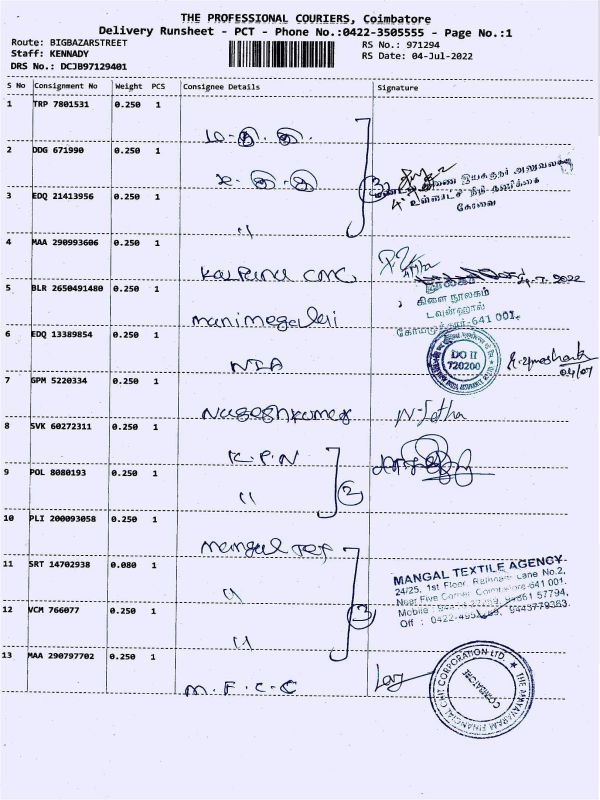 THE PROFESSIONAL COURIERS, Coimbatore
Delivery Runsheet - PCT - Phone No.:0422-3505555 - Page No.:1
Route: BIGBAZARSTREET
RS No.: 971294
Staff: KENNADY
RS Date: 04-Jul-2022
DRS No.: DCJB97129401
S No Consignment No Weight PCS Consignee Details Signature
1 TRP 7801531 0.250 1
ம.த.தி.
2 DDG 671990 0.250 1
3
இயக்குநர் அலுவலகம்
உள்ளாட்சி நிதி தணிக்கை
கோவை
3 EDQ 21413956 0.250 1
"
4 MAA 290993606 0.250 1
Kalpana CMC
.7.2022
5 BLR 2650491480 0.250 1
நூலகர்
கிளை நூலகம்
டவுன்ஹால்
கோயமுத்தூர்-641 001.
manimegalai
6 EDQ 13389854 0.250 1
NIA
DO II
720200
04/07
7 GPM 5220334 0.250 1
Nageshkumar
8 SVK 60272311 0.250 1
K.P.N
9 POL 8080193 0.250 1
"
2
10 PLI 200093058 0.250 1
mangal tex
11 SRT 14702938 0.080 1
"
MANGAL TEXTILE AGENCY
24/25, 1st Floor, Rathinam Lane No.2,
Near Five Corner, Coimbatore-641 001.
Mobile : 94861 57794,
Off : 0422-4952 9443779363
12 VCM 766077 0.250 1
"
3
13 MAA 290797702 0.250 1
M.F.C.C
THE MAYAVARAM FINANCIAL CHIT CORPORATION LTD
COIMBATORE